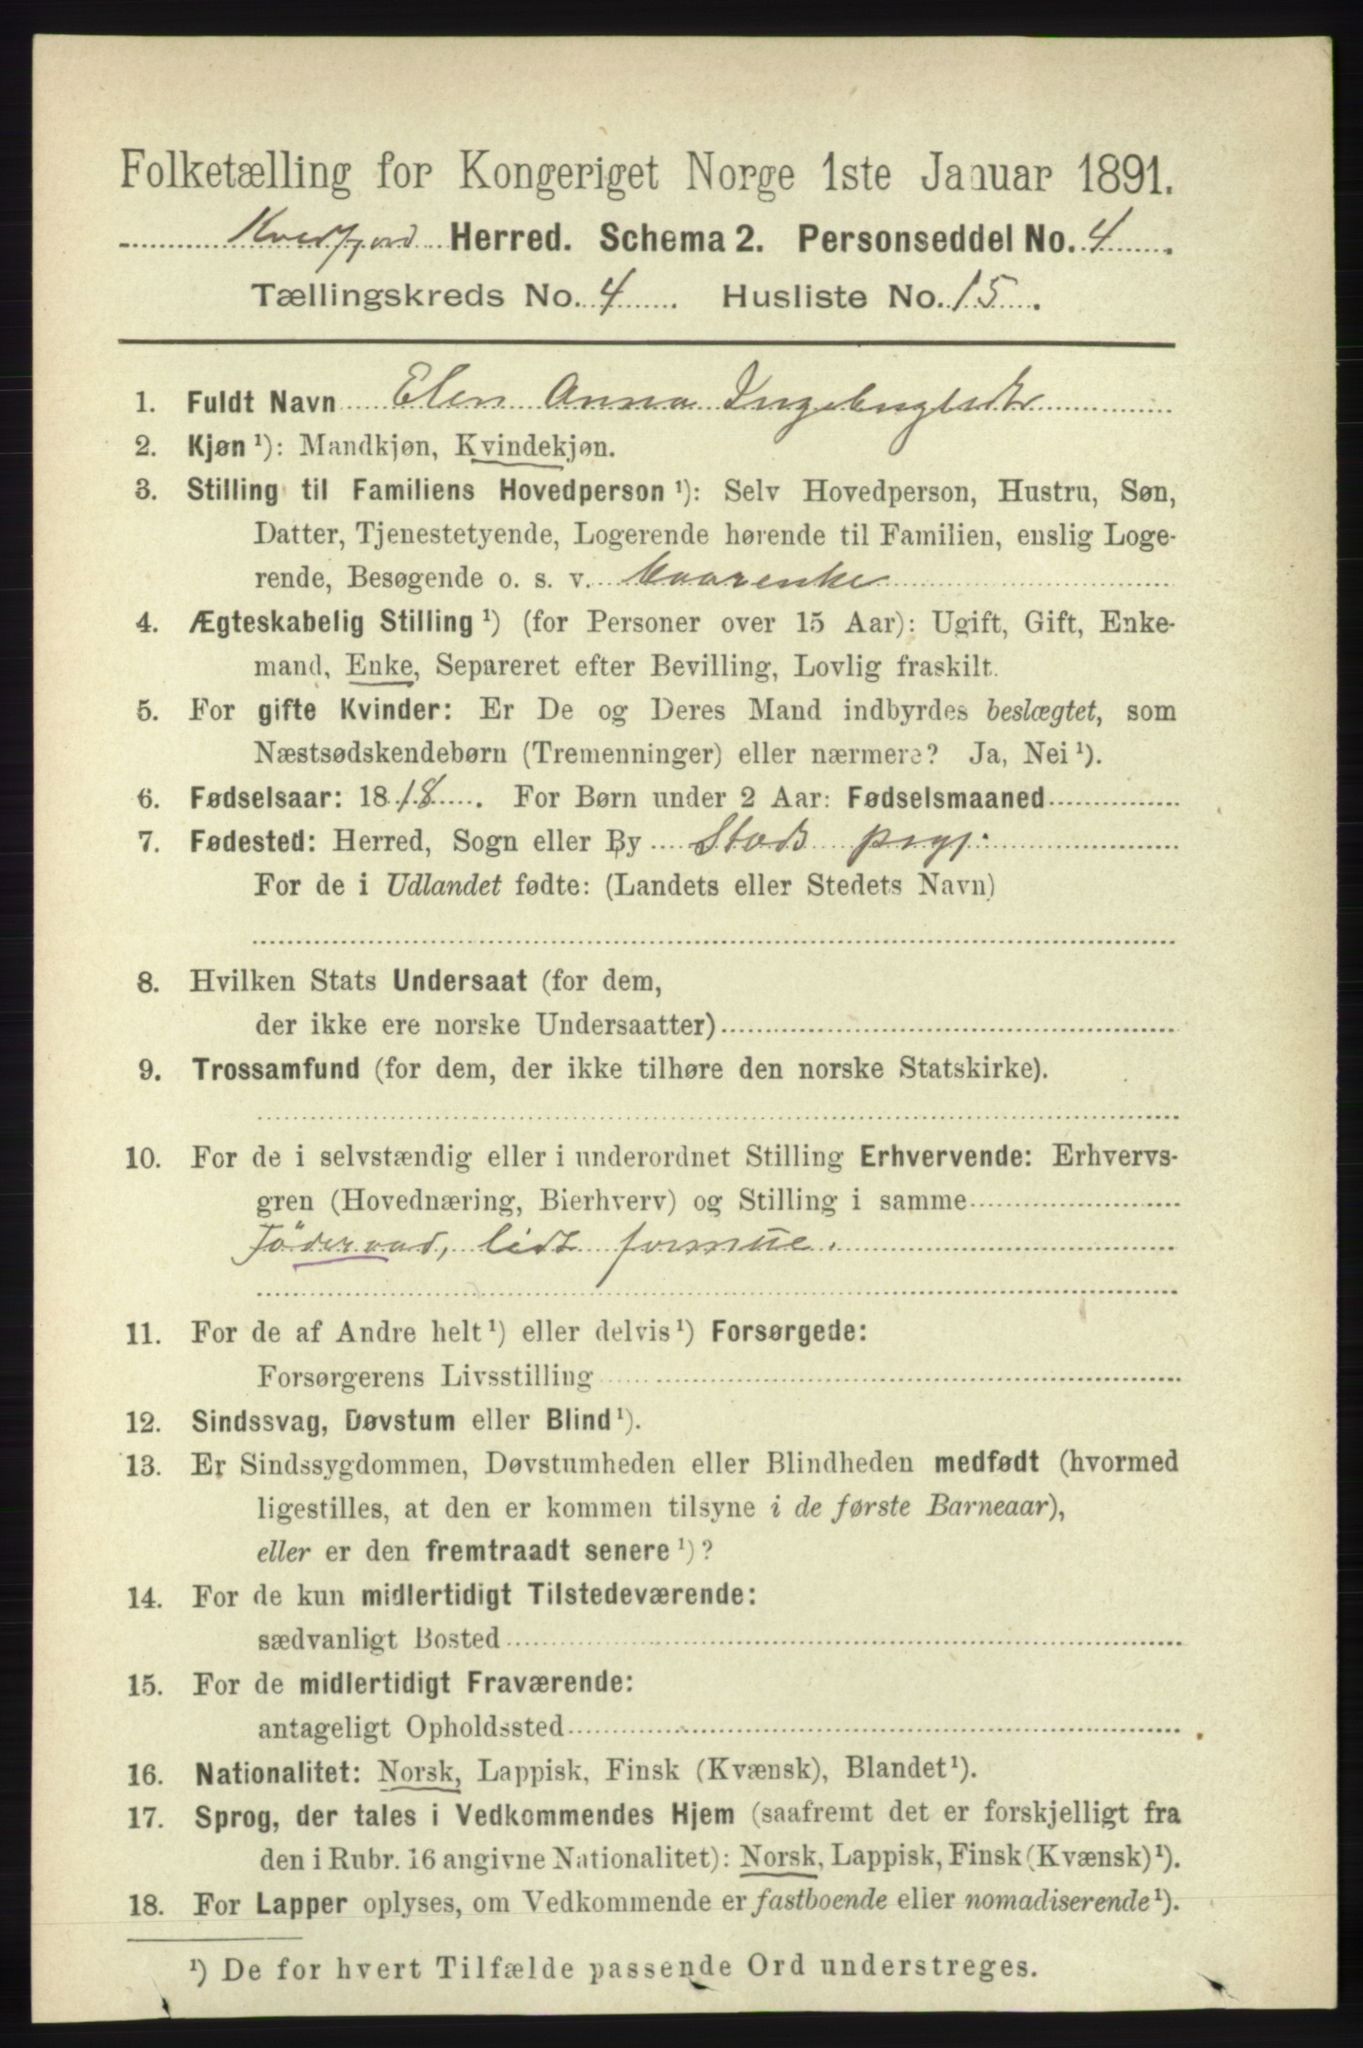 Folketælling for Kongeriget Norge 1ste Januar 1891.
Kvedfjord Herred. Schema 2. Personseddel No. 4.
Tællingskreds No. 4. Husliste No. 15.
1. Fuldt Navn Elen Anna Ingebrigtsdtr
2. Kjøn ¹): Mandkjøn, Kvindekjøn.
3. Stilling til Familiens Hovedperson ¹): Selv Hovedperson, Hustru, Søn,
Datter, Tjenestetyende, Logerende hørende til Familien, enslig Loge-
rende, Besøgende o. s. v. Kaarenke
4. Ægteskabelig Stilling ¹) (for Personer over 15 Aar): Ugift, Gift, Enke-
mand, Enke, Separeret efter Bevilling, Lovlig fraskilt.
5. For gifte Kvinder: Er De og Deres Mand indbyrdes beslægtet, som
Næstsødskendebørn (Tremenninger) eller nærmere? Ja, Nei ¹).
6. Fødselsaar: 1818. For Børn under 2 Aar: Fødselsmaaned
7. Fødested: Herred, Sogn eller By Stods prgj.
For de i Udlandet fødte: (Landets eller Stedets Navn)
8. Hvilken Stats Undersaat (for dem,
der ikke ere norske Undersaatter)
9. Trossamfund (for dem, der ikke tilhøre den norske Statskirke).
10. For de i selvstændig eller i underordnet Stilling Erhvervende: Erhvervs-
gren (Hovednæring, Bierhverv) og Stilling i samme
Föderaad, lidt formue.
11. For de af Andre helt ¹) eller delvis ¹) Forsørgede:
Forsørgerens Livsstilling
12. Sindssvag, Døvstum eller Blind ¹).
13. Er Sindssygdommen, Døvstumheden eller Blindheden medfødt (hvormed
ligestilles, at den er kommen tilsyne i de første Barneaar),
eller er den fremtraadt senere ¹)?
14. For de kun midlertidigt Tilstedeværende:
sædvanligt Bosted
15. For de midlertidigt Fraværende:
antageligt Opholdssted
16. Nationalitet: Norsk, Lappisk, Finsk (Kvænsk), Blandet ¹).
17. Sprog, der tales i Vedkommendes Hjem (saafremt det er forskjelligt fra
den i Rubr. 16 angivne Nationalitet): Norsk, Lappisk, Finsk (Kvænsk) ¹).
18. For Lapper oplyses, om Vedkommende er fastboende eller nomadiserende ¹).
¹) De for hvert Tilfælde passende Ord understreges.